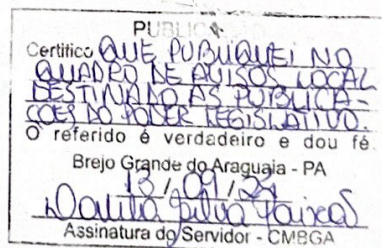 PUBLICAÇÃO
Certifico QUE PUBLIQUEI NO
QUADRO DE AVISOS LOCAL
DESTINADO AS PUBLICA-
ÇÕES DO PODER LEGISLATIVO.
O referido é verdadeiro e dou fé.
Brejo Grande do Araguaia - PA
13/09/
Silva
Assinatura do Servidor - CMBGA